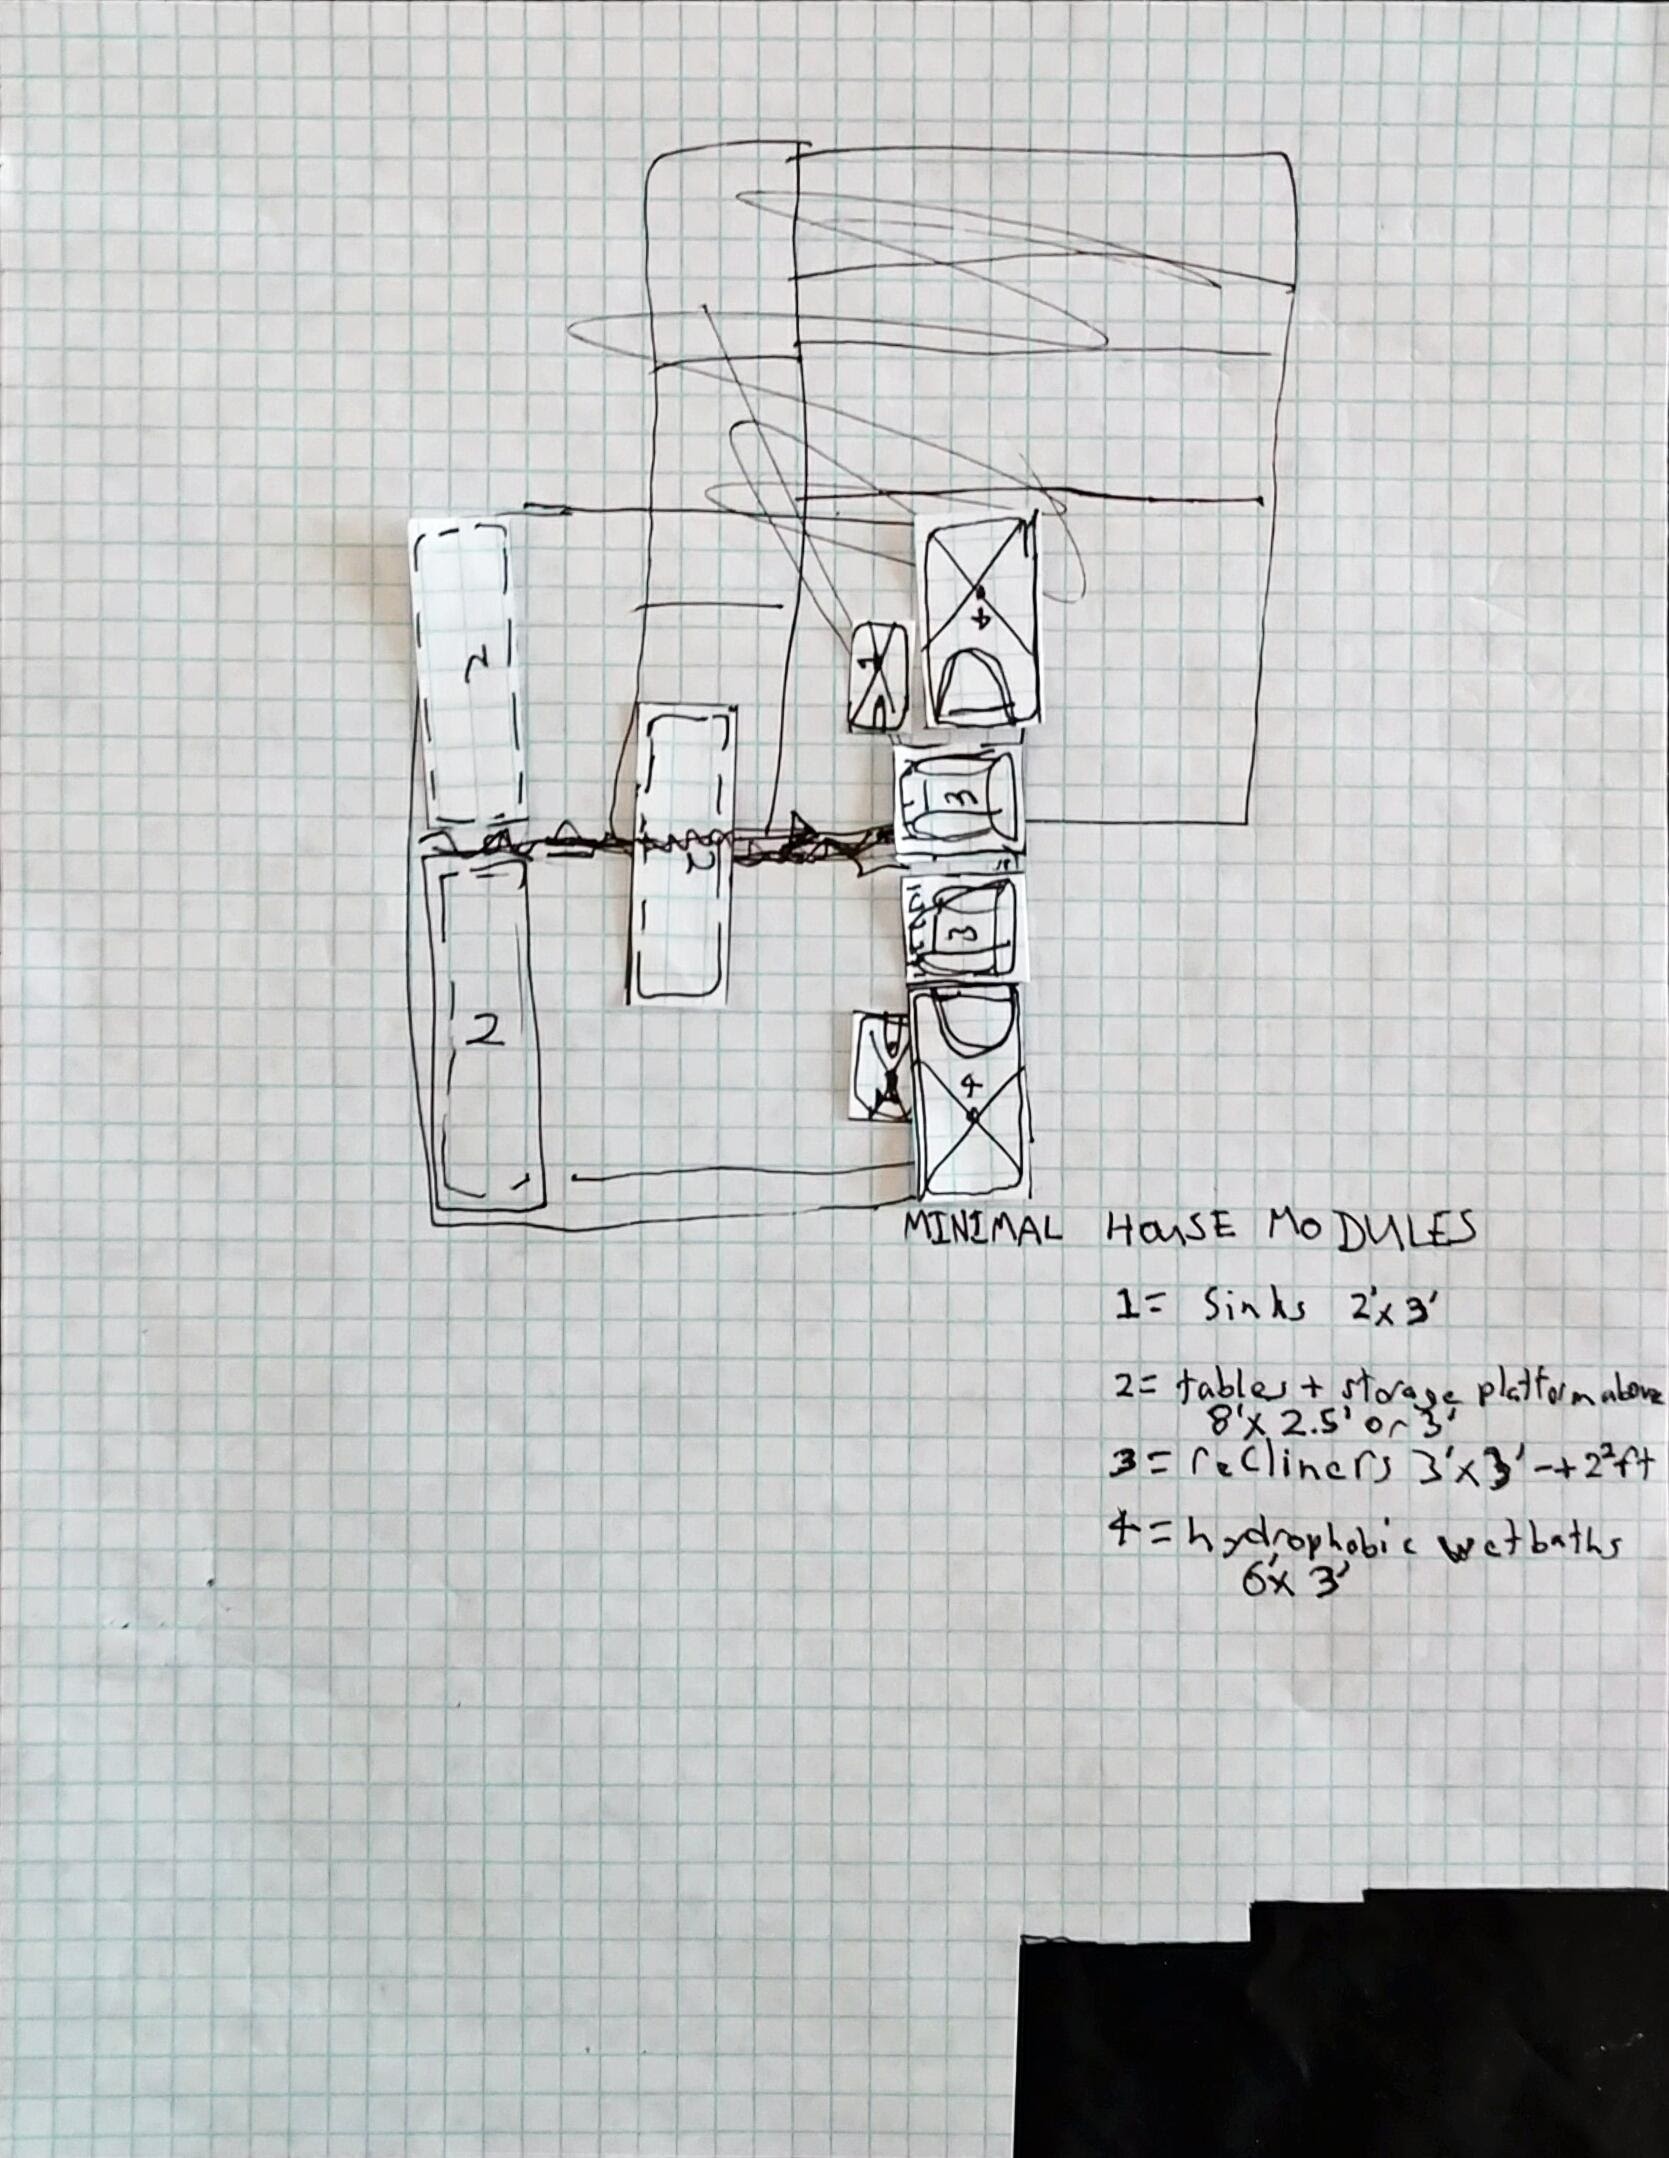 2
1
4
3
2
3
2
4
MINIMAL HOUSE MODULES
1= Sinks 2'x3'
2= tables + storage platform above
8'x 2.5' or 3'
3= recliners 3'x3' -+2²ft
4= hydrophobic wetbaths
6'x 3'